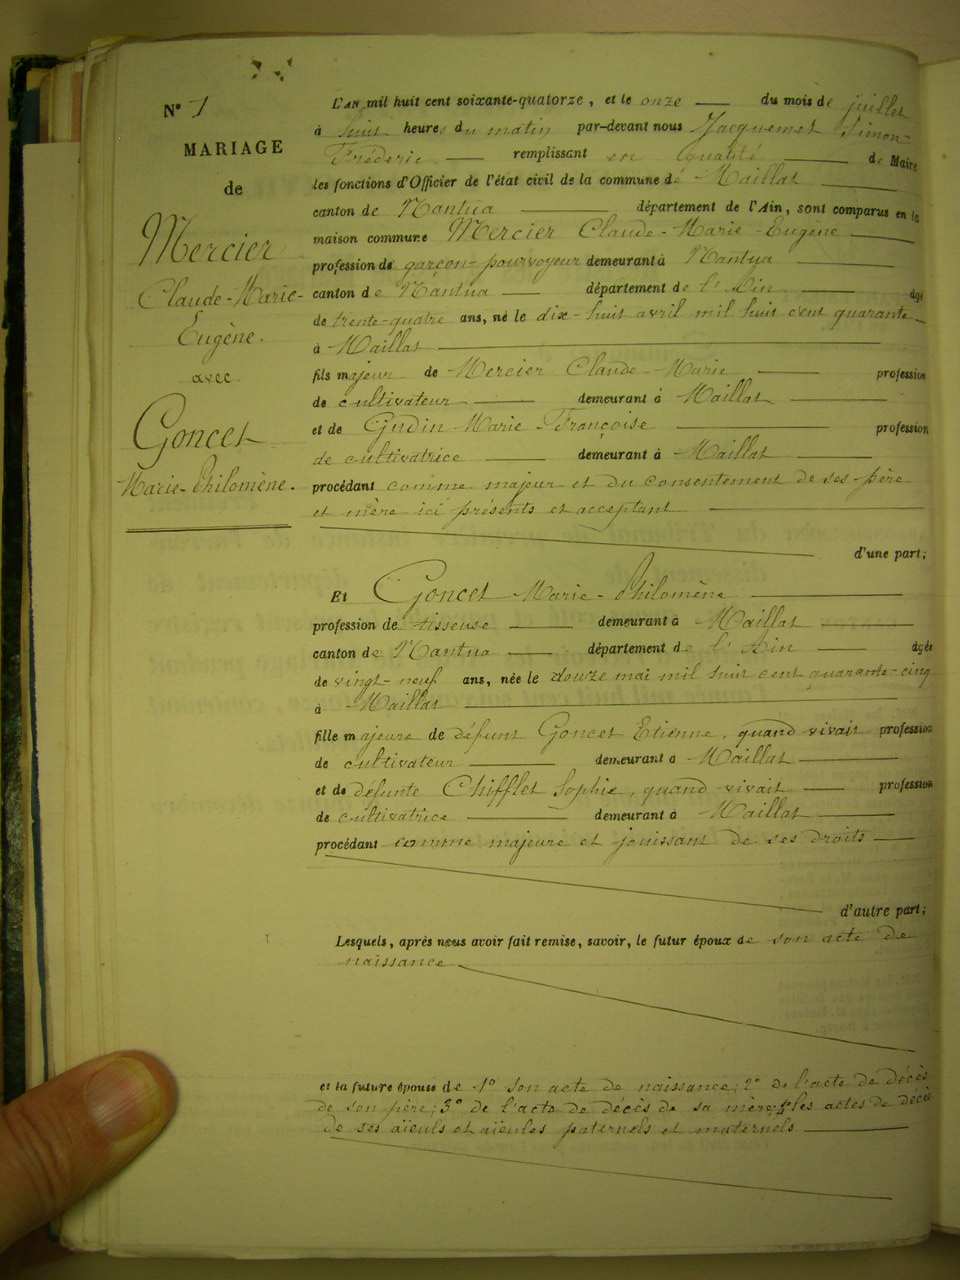 N° 7
MARIAGE
de
Mercier
Claude-Marie-
Eugène.
avec
Goncet
Marie-Philomène.
L'an mil huit cent soixante-quatorze, et le onze du mois de juillet
à huit heures du matin par-devant nous Jacquemet Simon-
Fréderic remplissant en qualité de Maire
les fonctions d'Officier de l'état civil de la commune de Maillat
canton de Nantua département de l'Ain, sont comparus en la
maison commune Mercier Claude-Marie-Eugène
profession de garçon-pourvoyeur demeurant à Nantua
canton de Nantua département de l'Ain âgé
de trente-quatre ans, né le dix-huit avril mil huit cent quarante
à Maillat
fils majeur de Mercier Claude-Marie profession
de cultivateur demeurant à Maillat
et de Gudin Marie-Françoise profession
de cultivatrice demeurant à Maillat
procédant comme majeur et du consentement de ses père
et mère ici présents et acceptant
d'une part;
Et Goncet Marie-Philomène
profession de tisseuse demeurant à Maillat
canton de Nantua département de l'Ain âgée
de vingt-neuf ans, née le douze mai mil huit cent quarante-cinq
à Maillat
fille majeure de défunt Goncet Etienne, quand vivait profession
de cultivateur demeurant à Maillat
et de défunte Chifflet Sophie, quand vivait profession
de cultivatrice demeurant à Maillat
procédant comme majeure et jouissant de ses droits
d'autre part;
Lesquels, après nous avoir fait remise, savoir, le futur époux de son acte de
naissance
et la future épouse de 1° son acte de naissance; 2° de l'acte de décès
de son père; 3° de l'acte de décès de sa mère; les actes de décès
de ses aïeuls et aïeules paternels et maternels